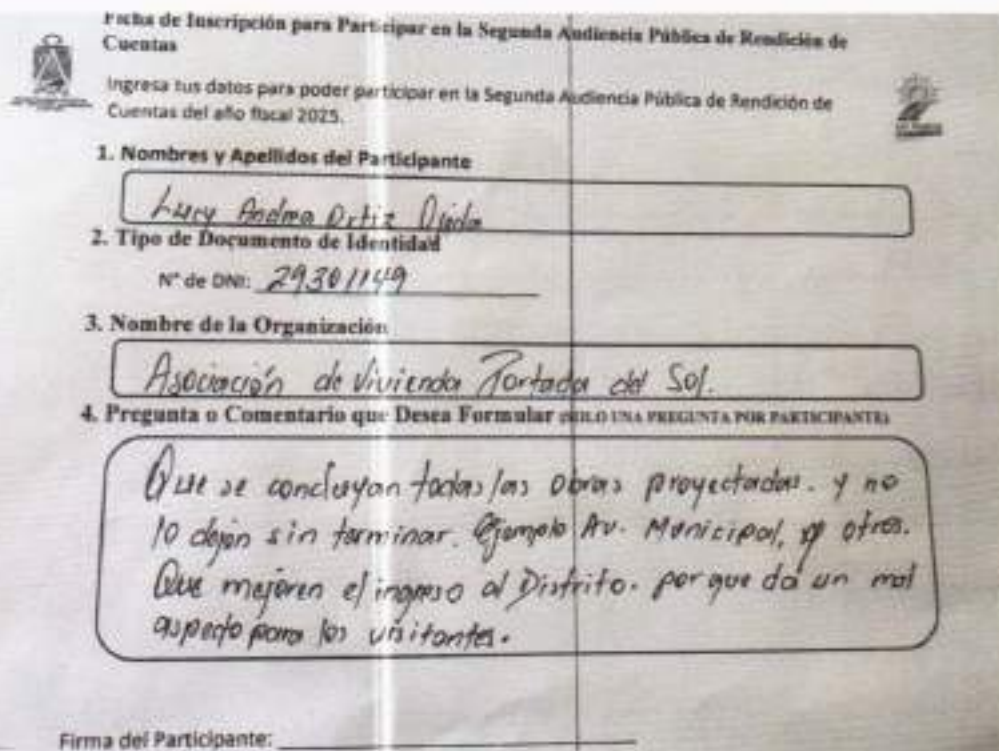 Ficha de Inscripción para Participar en la Segunda Audiencia Pública de Rendición de
Cuentas
Ingresa tus datos para poder participar en la Segunda Audiencia Pública de Rendición de
Cuentas del año fiscal 2025.
1. Nombres y Apellidos del Participante
Lucy Andrea Ortiz Ojeda
2. Tipo de Documento de Identidad
N° de DNI: 29301149
3. Nombre de la Organización
Asociación de Vivienda Portada del Sol.
4. Pregunta o Comentario que Desea Formular (SOLO UNA PREGUNTA POR PARTICIPANTE)
Que se concluyan todas las obras proyectadas. y no
lo dejen sin terminar. Ejemplo Av. Municipal, y otros.
Que mejoren el ingreso al Distrito. por que da un mal
aspecto para los visitantes.
Firma del Participante: